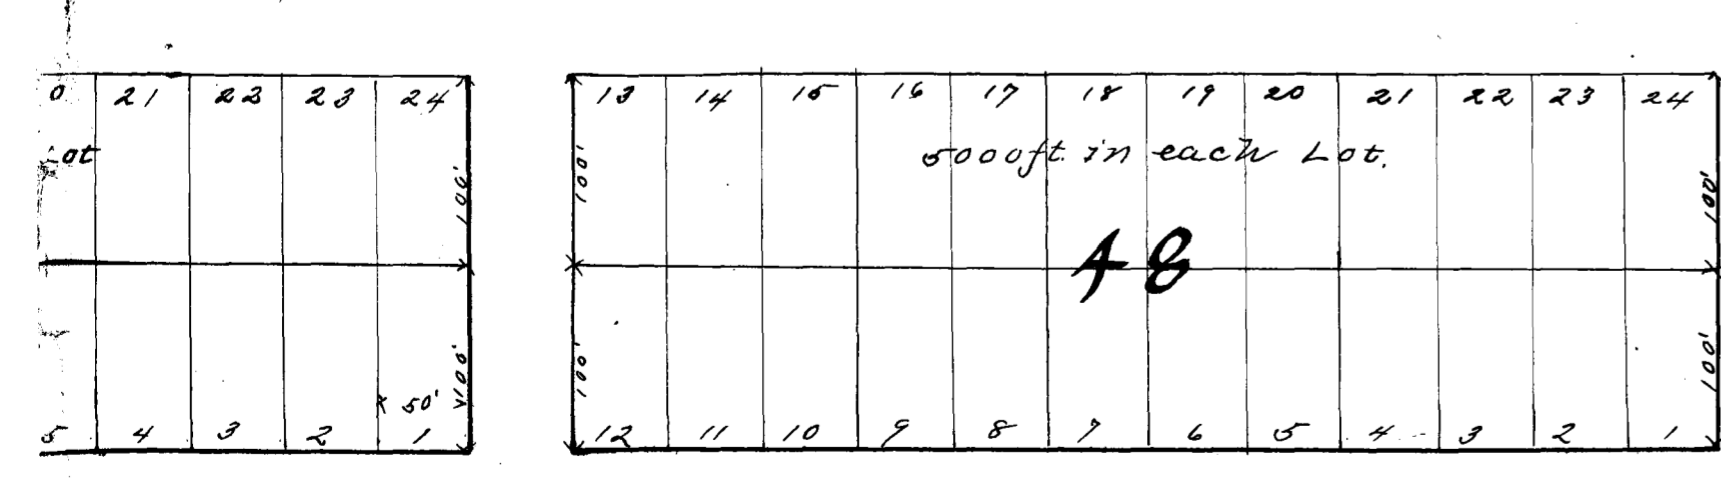 0 21 22 23 24
Lot
100'
100'
50'
5 4 3 2 1
13 14 15 16 17 18 19 20 21 22 23 24
5000ft. in each Lot.
100'
100'
48
100'
100'
12 11 10 9 8 7 6 5 4 3 2 1